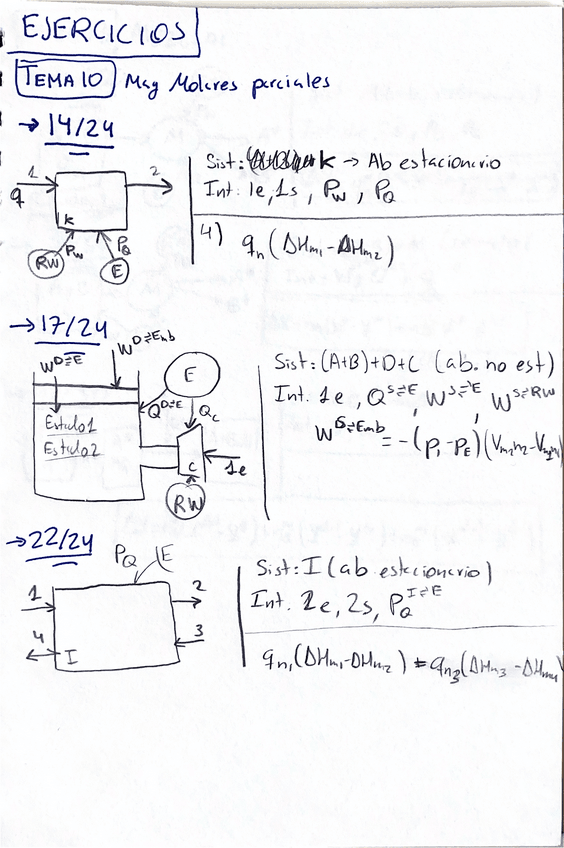 EJERCICIOS
TEMA 10 Mag Molares parciales
→ 14/24
1 2
q
K
RW Pw PQ E
Sist: K → Ab estacionario
Int: 1e, 1s, Pw, PQ
4) qn (ΔHm1 - ΔHm2)
→ 17/24
W^D⇌E W^D⇌Emb
E
Q^D⇌E Qc
Estado 1
Estado 2
C 1e
RW
Sist: (A+B)+D+C (ab. no est)
Int. 1e, Q^S⇌E, W^S⇌E, W^S⇌RW
W^D⇌Emb = -(P1-PE)(Vm2n2-Vm1n1)
→ 22/24
PQ E
1 2
4 3
I
Sist: I (ab estacionario)
Int. 2e, 2s, PQ^I⇌E
qn1(ΔHm1-ΔHm2) = qn3(ΔHm3-ΔHm4)